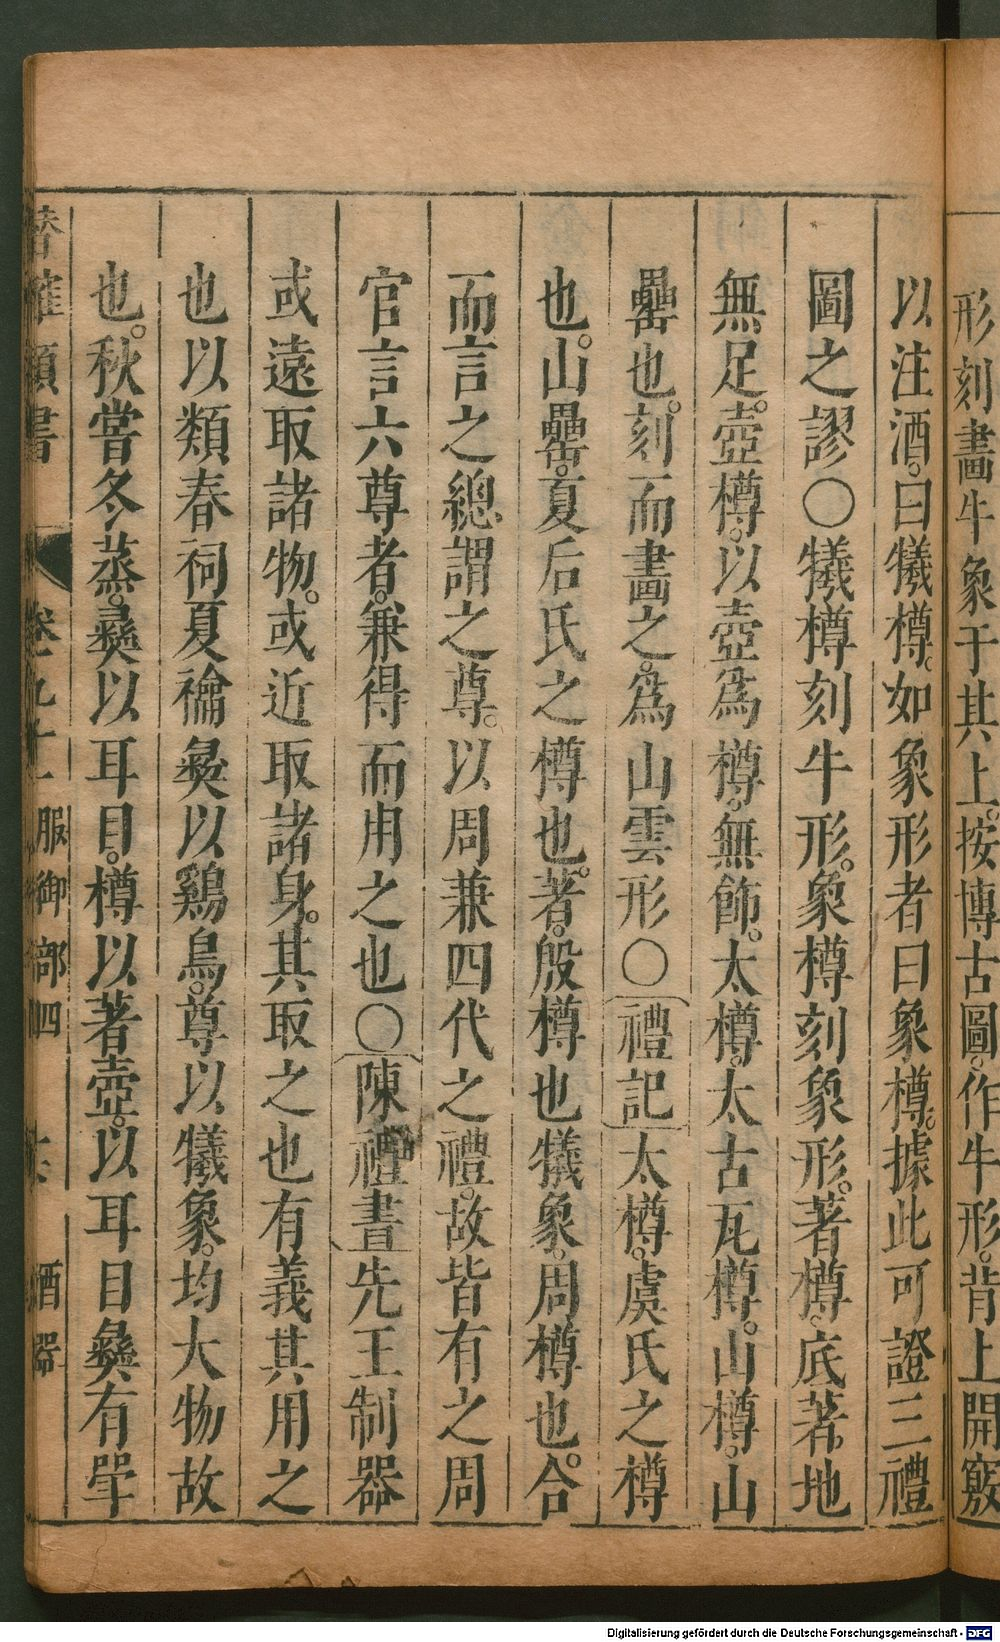 形刻畫牛象于其上。按博古圖。作牛形。背上開竅
以注酒。曰犧樽。如象形者曰象樽。據此可證三禮
圖之謬〇犧樽刻牛形。象樽刻象形。著樽底著地
無足。壺樽。以壺爲樽。無飾。太樽。太古瓦樽。山樽。山
罍也。刻而畫之。爲山雲形〇禮記太樽。虞氏之樽
也。山罍。夏后氏之樽也。著。殷樽也犧象。周樽也。合
而言之。總謂之尊。以周兼四代之禮。故皆有之周
官言六尊者。兼得而用之也〇陳禮書先王制器
或遠取諸物。或近取諸身。其取之也有義其用之
也以類春祠夏禴彜以鷄鳥。尊以犧象。均大物故
也。秋嘗冬蒸。彜以耳目。樽以著壺。以耳目彜有斝
潛確類書 卷九十 服御部四 酒器
Digitalisierung gefördert durch die Deutsche Forschungsgemeinschaft - DFG